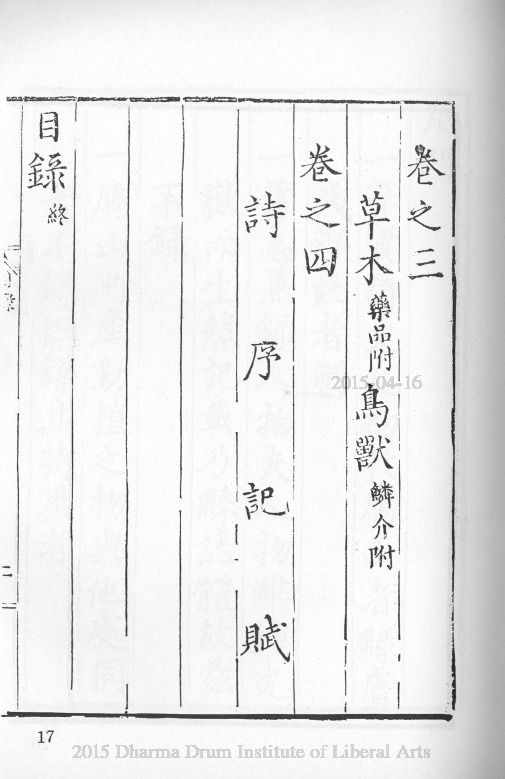 卷之三
草木藥品附鳥獸鱗介附
卷之四
詩序記賦
目錄終
2015-04-16
17
2015 Dharma Drum Institute of Liberal Arts